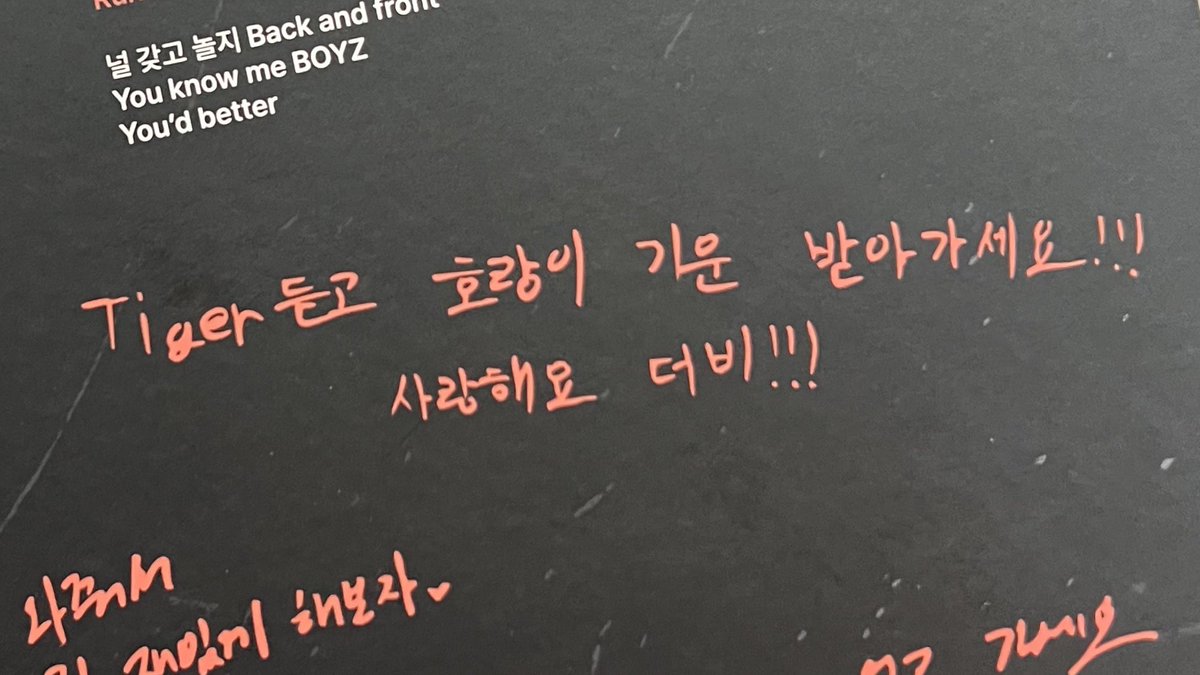 널 갖고 놀지 Back and front
You know me BOYZ
You'd better
Tiger듣고 호랑이 기운 받아가세요!!!
사랑해요 더비!!!
해보자♥
가세요